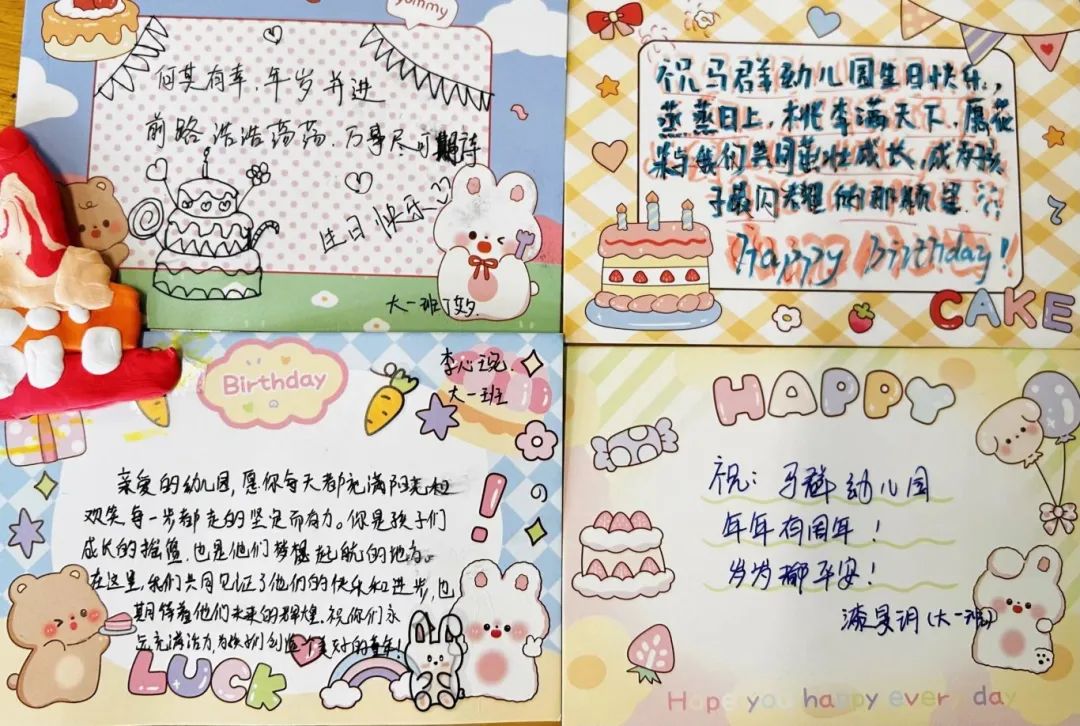 yummy
何其有幸,年岁并进
前路浩浩荡荡,万事尽可期待
生日快乐
大一班丁
祝马群幼儿园生日快乐,
蒸蒸日上,桃李满天下,愿花
朵与我们共同茁壮成长,成为孩
子最闪耀的那颗星
Happy birthday!
CAKE
Birthday
李心
大一班
亲爱的幼儿园,愿你每天都充满阳光和
欢笑每一步都走的坚定而有力。你是孩子们
成长的摇篮,也是他们梦想起航的地方。
在这里,我们共同见证了他们的快乐和进步,也
期待着他们未来的辉煌.祝你们永
远充满活力,为孩子们创造一个美好的童年!
LUCK
HAPPY
祝:马群幼儿园
年年有周年!
岁岁都平安!
漆昊玥(大一班)
Hope you happy every day